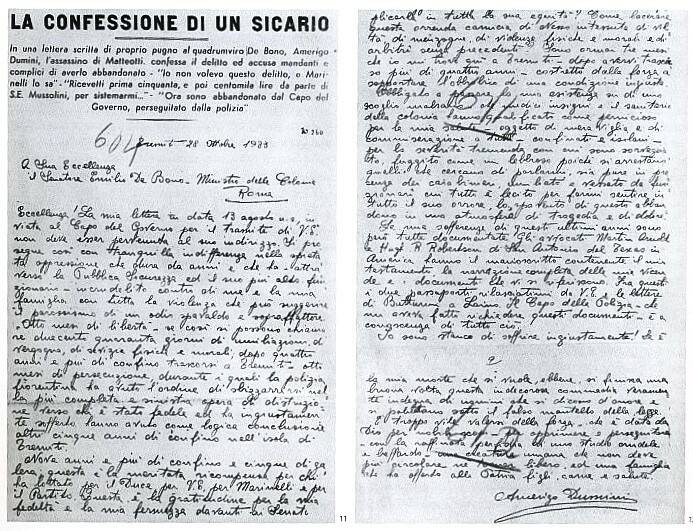 LA CONFESSIONE DI UN SICARIO
In una lettera scritta di proprio pugno al quadrumviro De Bono, Amerigo
Dumini, l'assassino di Matteotti. confessa il delitto ed accusa mandanti e
complici di averlo abbandonato - "Io non volevo questo delitto, e Mari-
nelli lo sa" - "Ricevetti prima cinquanta, e poi centomila lire da parte di
S.E. Mussolini, per sistemarmi" - "Ora sono abbandonato dal Capo del
Governo, perseguitato dalla polizia"
N° 260
Tremiti - 28 Ottobre 1933
A Sua Eccellenza
il Senatore Emilio De Bono - Ministro delle Colonie
Roma
Eccellenza! La mia lettera in data 13 agosto u.s., in-
viata al Capo del Governo per il tramite di V.E.
non deve esser pervenuta al suo indirizzo. Si pro
segue così con tranquilla indifferenza nella spieta
ta oppressione che dura da anni e che ha attra
verso la Pubblica Sicurezza ed il suo più alto fun
zionario - incrudelito contro di me e la mia
famiglia con tutta la violenza che può suggerire
il parossismo di un odio spavaldo e sopraffattore.
Otto mesi di libertà - se così si possono chiama
re duecento quaranta giorni di umiliazioni, di
vergogna, di sevizie fisiche e morali, dopo quattro
anni e più di confino trascorsi a Tremiti - otto
mesi di persecuzione durante i quali la polizia
fiorentina ha avuto l'ordine di sbizzarrirsi nel
la più completa e sinistra opera di distruzio
ne verso chi è stato fedele ed ha ingiustamen
te sofferto hanno avuto come logica conclusione
altri cinque anni di confino nell'isola di
Tremiti.
Nove anni e più di confino e cinque di ga
lera questa è la meritata ricompensa per chi
ha lottato per il Duce per V.E, per Marinelli e per
il Partito. Questa è la gratitudine per la mia
fedeltà e la mia fermezza davanti ai Senati
11
plicarla in tutta la sua equità? Come lacerare
questa orrenda camicia di Nesso intessuta di vil
tà, di menzogna, di violenza fisiche e morali e di
arbitri senza precedenti? Sono ormai tre mesi
che io mi trovo qui a Tremiti - dopo avervi trascor
so più di quattro anni - costretto dalla forza a
sopportare l'obbrobrio di una condizione iniqua.
Obbligato a la mia esistenza su di uno
scoglio malsano che medici insigni e il sanitario
della colonia hanno giudicato come pernicioso
per la mia salute - oggetto di meraviglia e di
commiserazione di tutti - confinati e isolani -
per la severità tremenda con cui sono sorveglia
to, fuggito come un lebbroso poiché si arrestano
quelli che cercano di parlarmi, sia pure in pre
senza dei carabinieri, umiliato e
con tutte le leggi per farmi sentire in
tutto il suo orrore, lo spavento di questo abban
dono in una atmosfera di tragedia e di dolore.
Le mie sofferenze di questi ultimi anni sono
però tutte documentate. Gli avvocati Martin Arnold
e Hagh R. Robertson di San Antonio del Texas in
America hanno il manoscritto contenente il mio
testamento la narrazione completa della mia vicen
da e i documenti che vi si riferiscono. Fra questi
i due passaporti rilasciatimi da V.E. e le lettere
di a Lama. Il Capo della Polizia - che
me aveva fatto richiedere questi documenti - è a
conoscenza di tutto ciò.
Io sono stanco di soffrire ingiustamente! Se è
2
la mia morte che si vuole, ebbene, si finisca una
buona volta questa indecorosa commedia veramen
te indegna di uomini che si dicono d'onore e
si ammantano sotto il falso mantello della legge.
È troppo vile valersi della forza - che è data da
Dio per nobile scopo - per opprimere e perseguitare
con la raffinata perfidia di uno studio crudele
e beffardo - una creatura umana che non deve
più circolare ne libero, ed una famiglia
che ha offerto alla Patria figli, carne e salute.
Amerigo Dumini